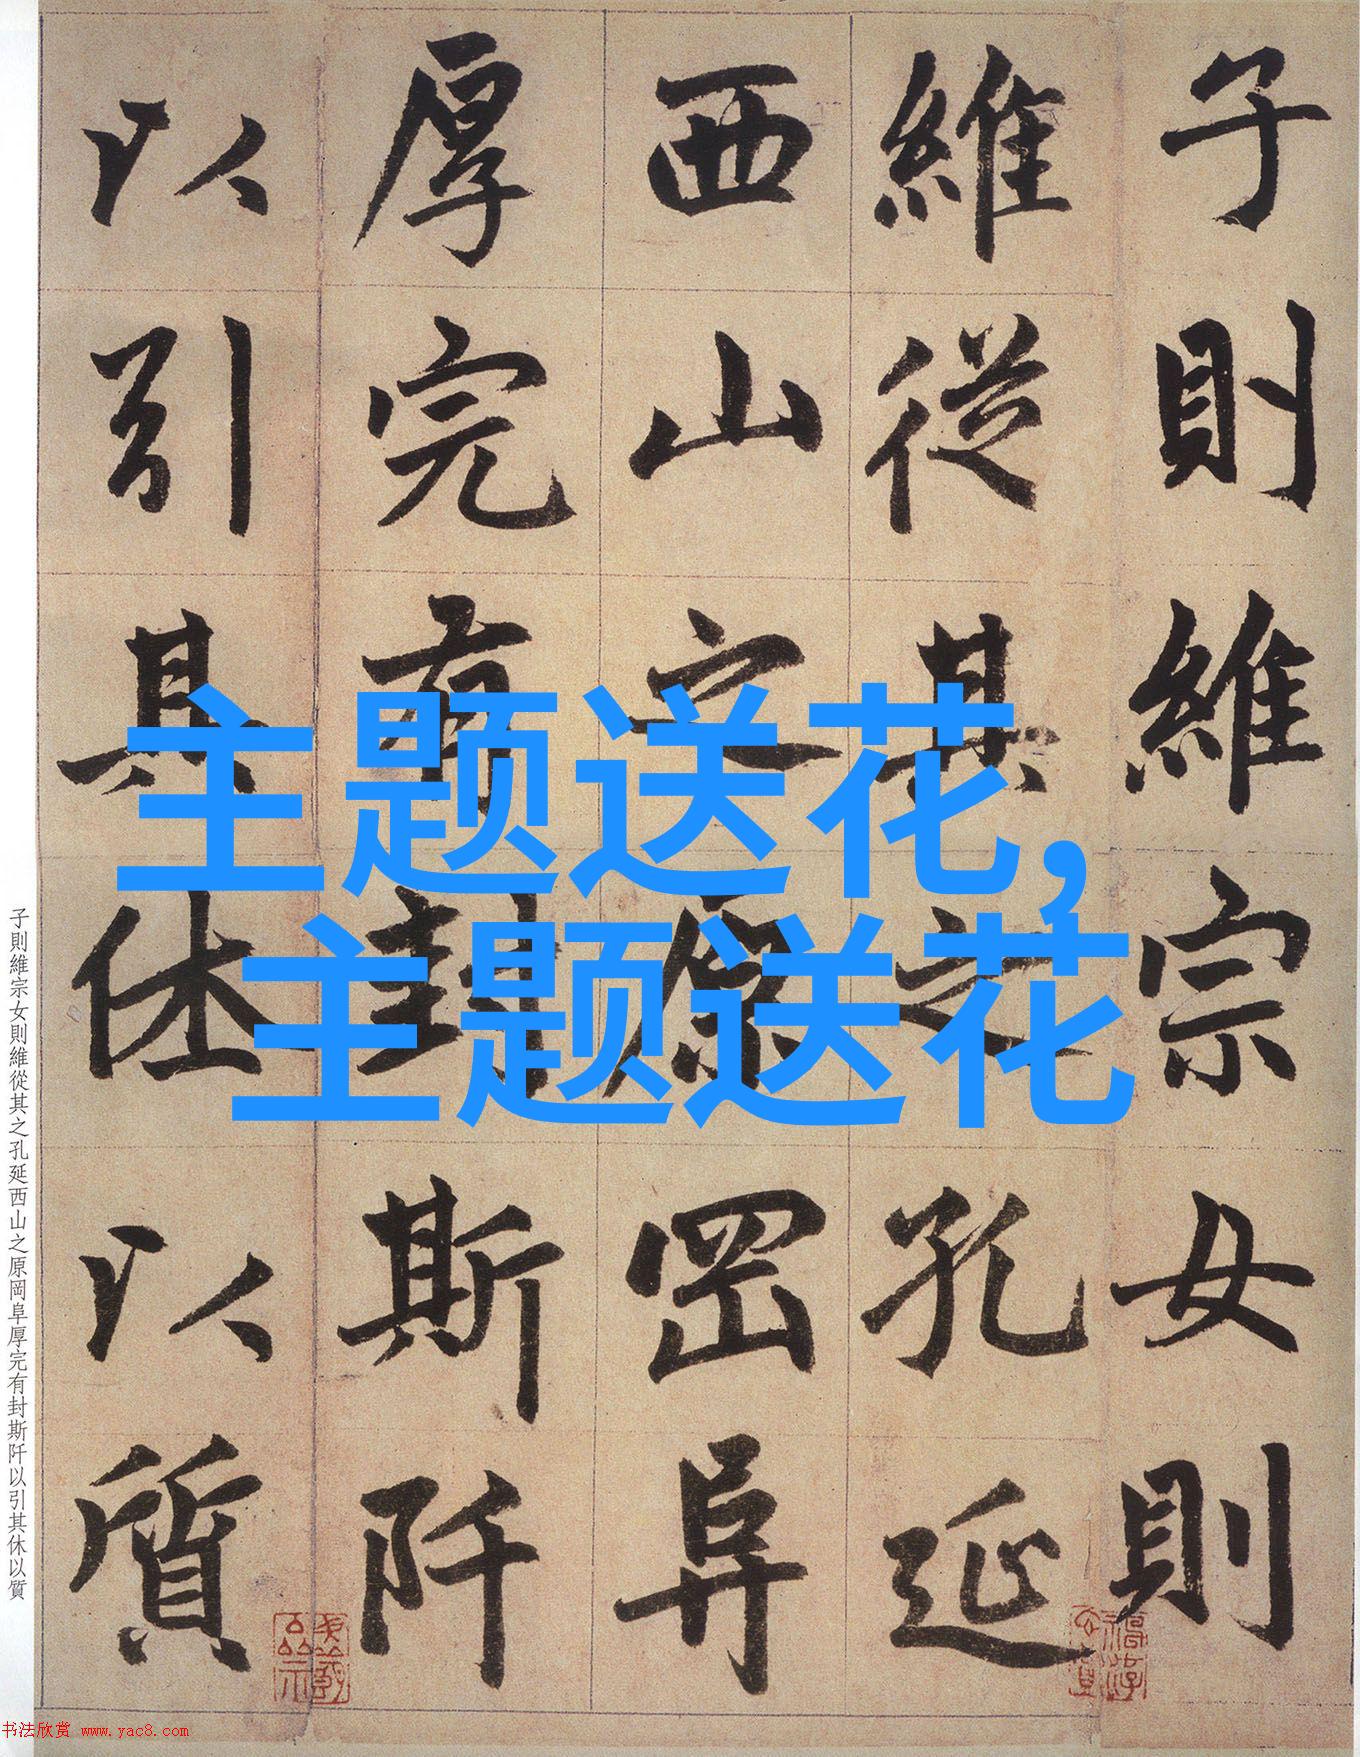 子則維宗女則
維從其之孔延
西山之原岡阜
厚完有封斯阡
以引其休以質
主题送花,
主题送花
子則維宗女則維從其之孔延西山之原岡阜厚完有封斯阡以引其休以質
书法欣赏 www.yac8.com